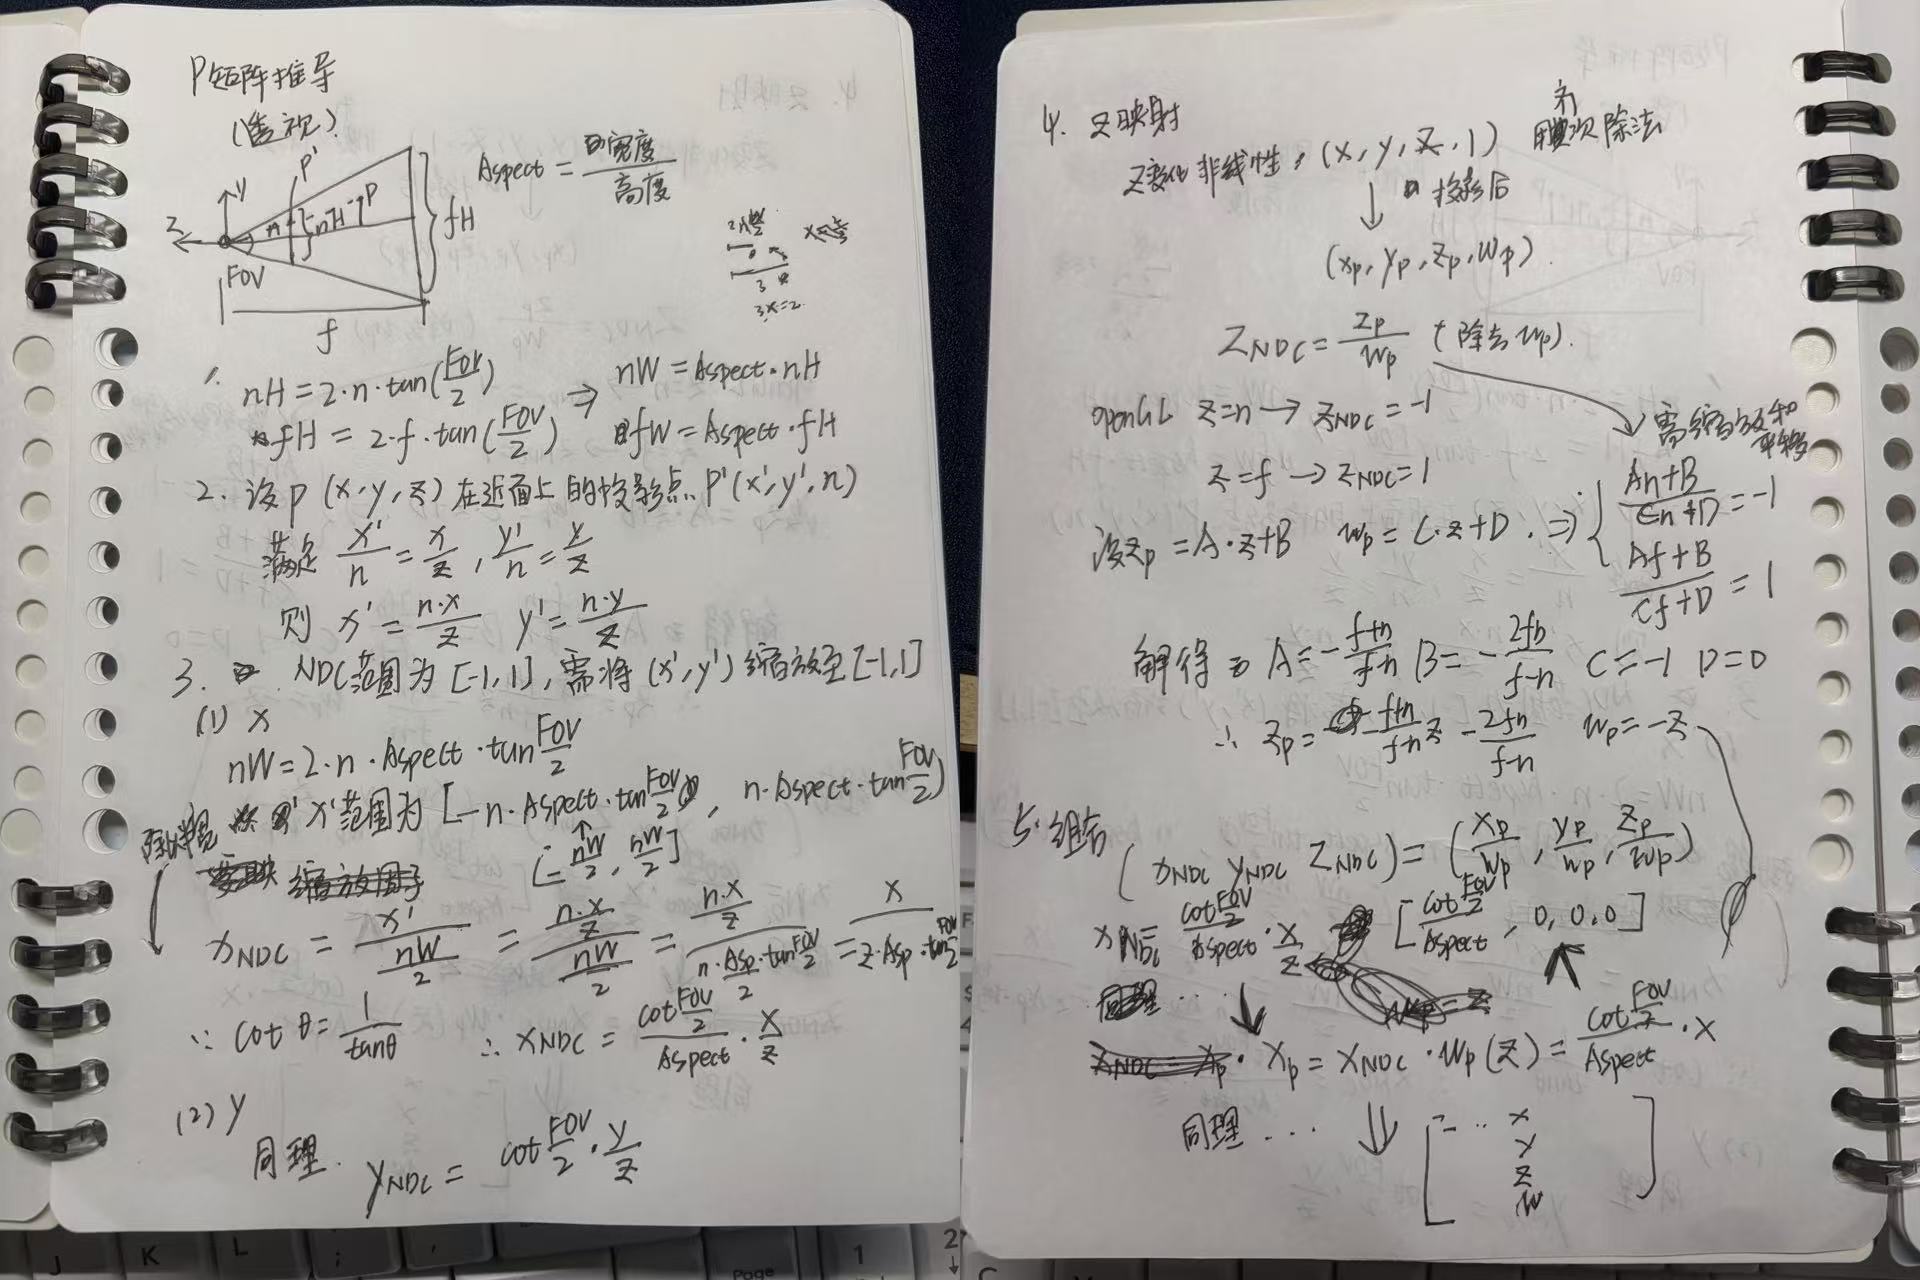 P矩阵推导
(透视)
P'
Y
Z
n
nH
P
fH
FOV
f
Aspect = 宽度/高度
3x=2
1. nH = 2·n·tan(FOV/2) ⇒ nW = Aspect·nH
fH = 2·f·tan(FOV/2) fW = Aspect·fH
2. 设P(x,y,z)在近面上的投影点P'(x',y',n)
满足 x'/n = x/z , y'/n = y/z
则 x' = n·x/z y' = n·y/z
3. NDC范围为[-1,1],需将(x',y')缩放至[-1,1]
(1) x
nW = 2·n·Aspect·tan FOV/2
x'范围为[-n·Aspect·tan FOV/2 , n·Aspect·tan FOV/2)
[-nW/2, nW/2]
缩放因子
xNDC = x'/(nW/2) = (n·x/z)/(nW/2) = (n·x/z)/(n·Asp·tan FOV/2) = x/(z·Asp·tan FOV/2)
∵ cot θ = 1/tanθ ∴ xNDC = (cot FOV/2)/Aspect · x/z
(2) y
同理. yNDC = cot FOV/2 · y/z
4. Z映射
齐次除法
Z变化非线性: (x, y, z, 1)
↓ 投影后
(xp, yp, zp, wp).
ZNDC = zp/wp (除去wp).
需缩放和平移
openGL z=n → zNDC = -1
z=f → zNDC = 1
设zp = A·z+B wp = C·z+D. ⇒ { (An+B)/(Cn+D) = -1
(Af+B)/(Cf+D) = 1
解得 A = -(f+n)/(f-n) B = -2fn/(f-n) C = -1 D = 0
∴ zp = -(f+n)/(f-n) z - 2fn/(f-n) wp = -z
5. 组合
(xNDC yNDC zNDC) = (xp/wp , yp/wp , zp/wp)
xNDC = (cot FOV/2)/Aspect · x/z [(cot FOV/2)/Aspect , 0, 0, 0]
同理...
xp = xNDC · wp(z) = (cot FOV/2)/Aspect · x
同理... ⇓ [ ... x
y
z
w ]